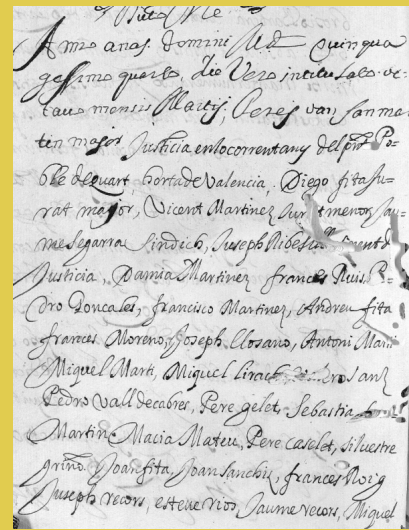 Anno anat. Domini M. D. quinqua
gessimo quarto, die Vero intitulato vi-
tavo mensis Martij, Peres van sanmar
tin major Justicia en lo corrent any del pnt Po-
ble de Quart horta de Valencia. Diego fita Ju-
rat major, Vicent Martinez Jurat menor, Jau-
me Segarra Sindich, Juseph Ribes
Justicia, Damia Martinez frances Ruis, Pe-
dro Goncales, francisco Martinez, Andreu fita
frances Moreno, Joseph Llosano, Antoni
Miquel Marti, Miquel sanz
Pedro Valldecabres, Pere gelet, Sebastia
Martin Macia Mateu, Pere Caselet, silvestre
griño. Joan fita, Joan Sanchis, frances Roig
Juseph recors, esteve rios, Jaume recors, Miquel